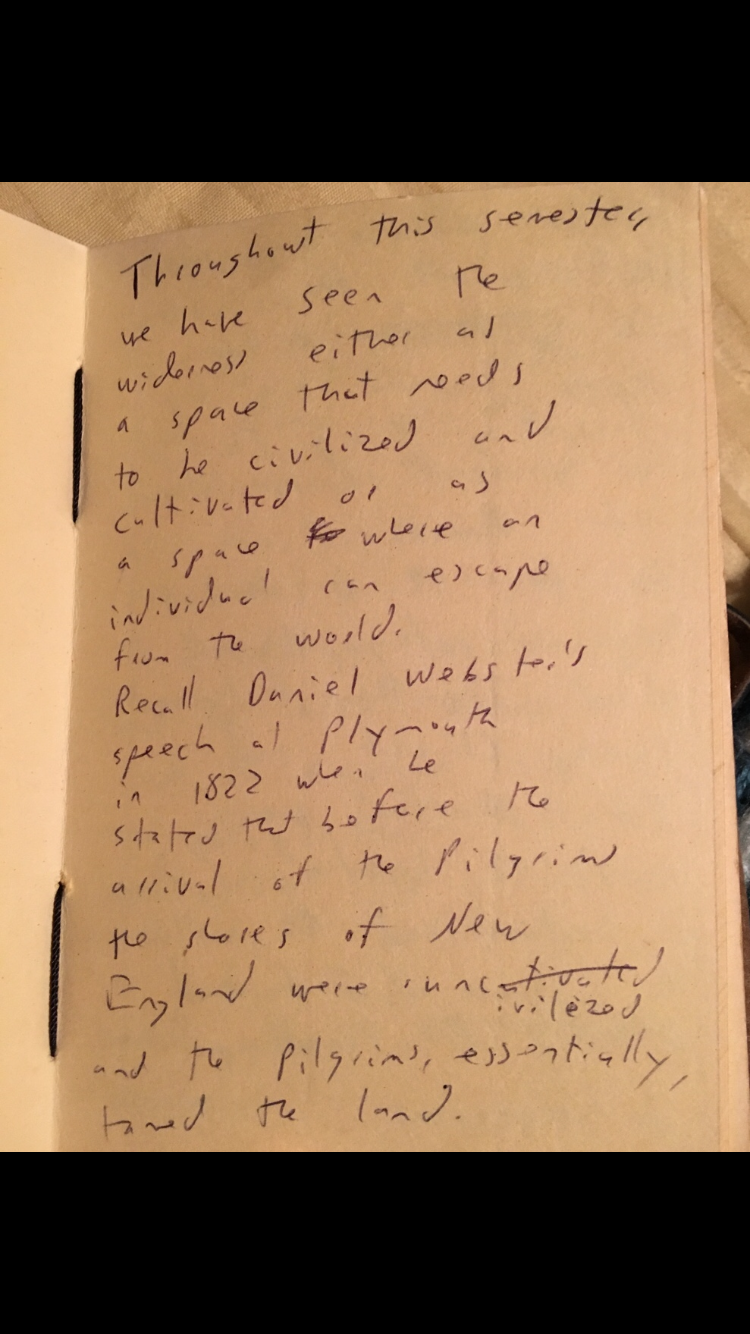 Throughout this semester,
we have seen the
widerness either as
a space that needs
to be civilized and
cultivated or as
a space where an
individual can escape
from the world.
Recall Daniel Webster's
speech at Plymouth
in 1822 when he
stated that before the
arrival of the Pilgrims
the shores of New
England were uncultivated
ivilized
and the Pilgrims, essentially,
tamed the land.